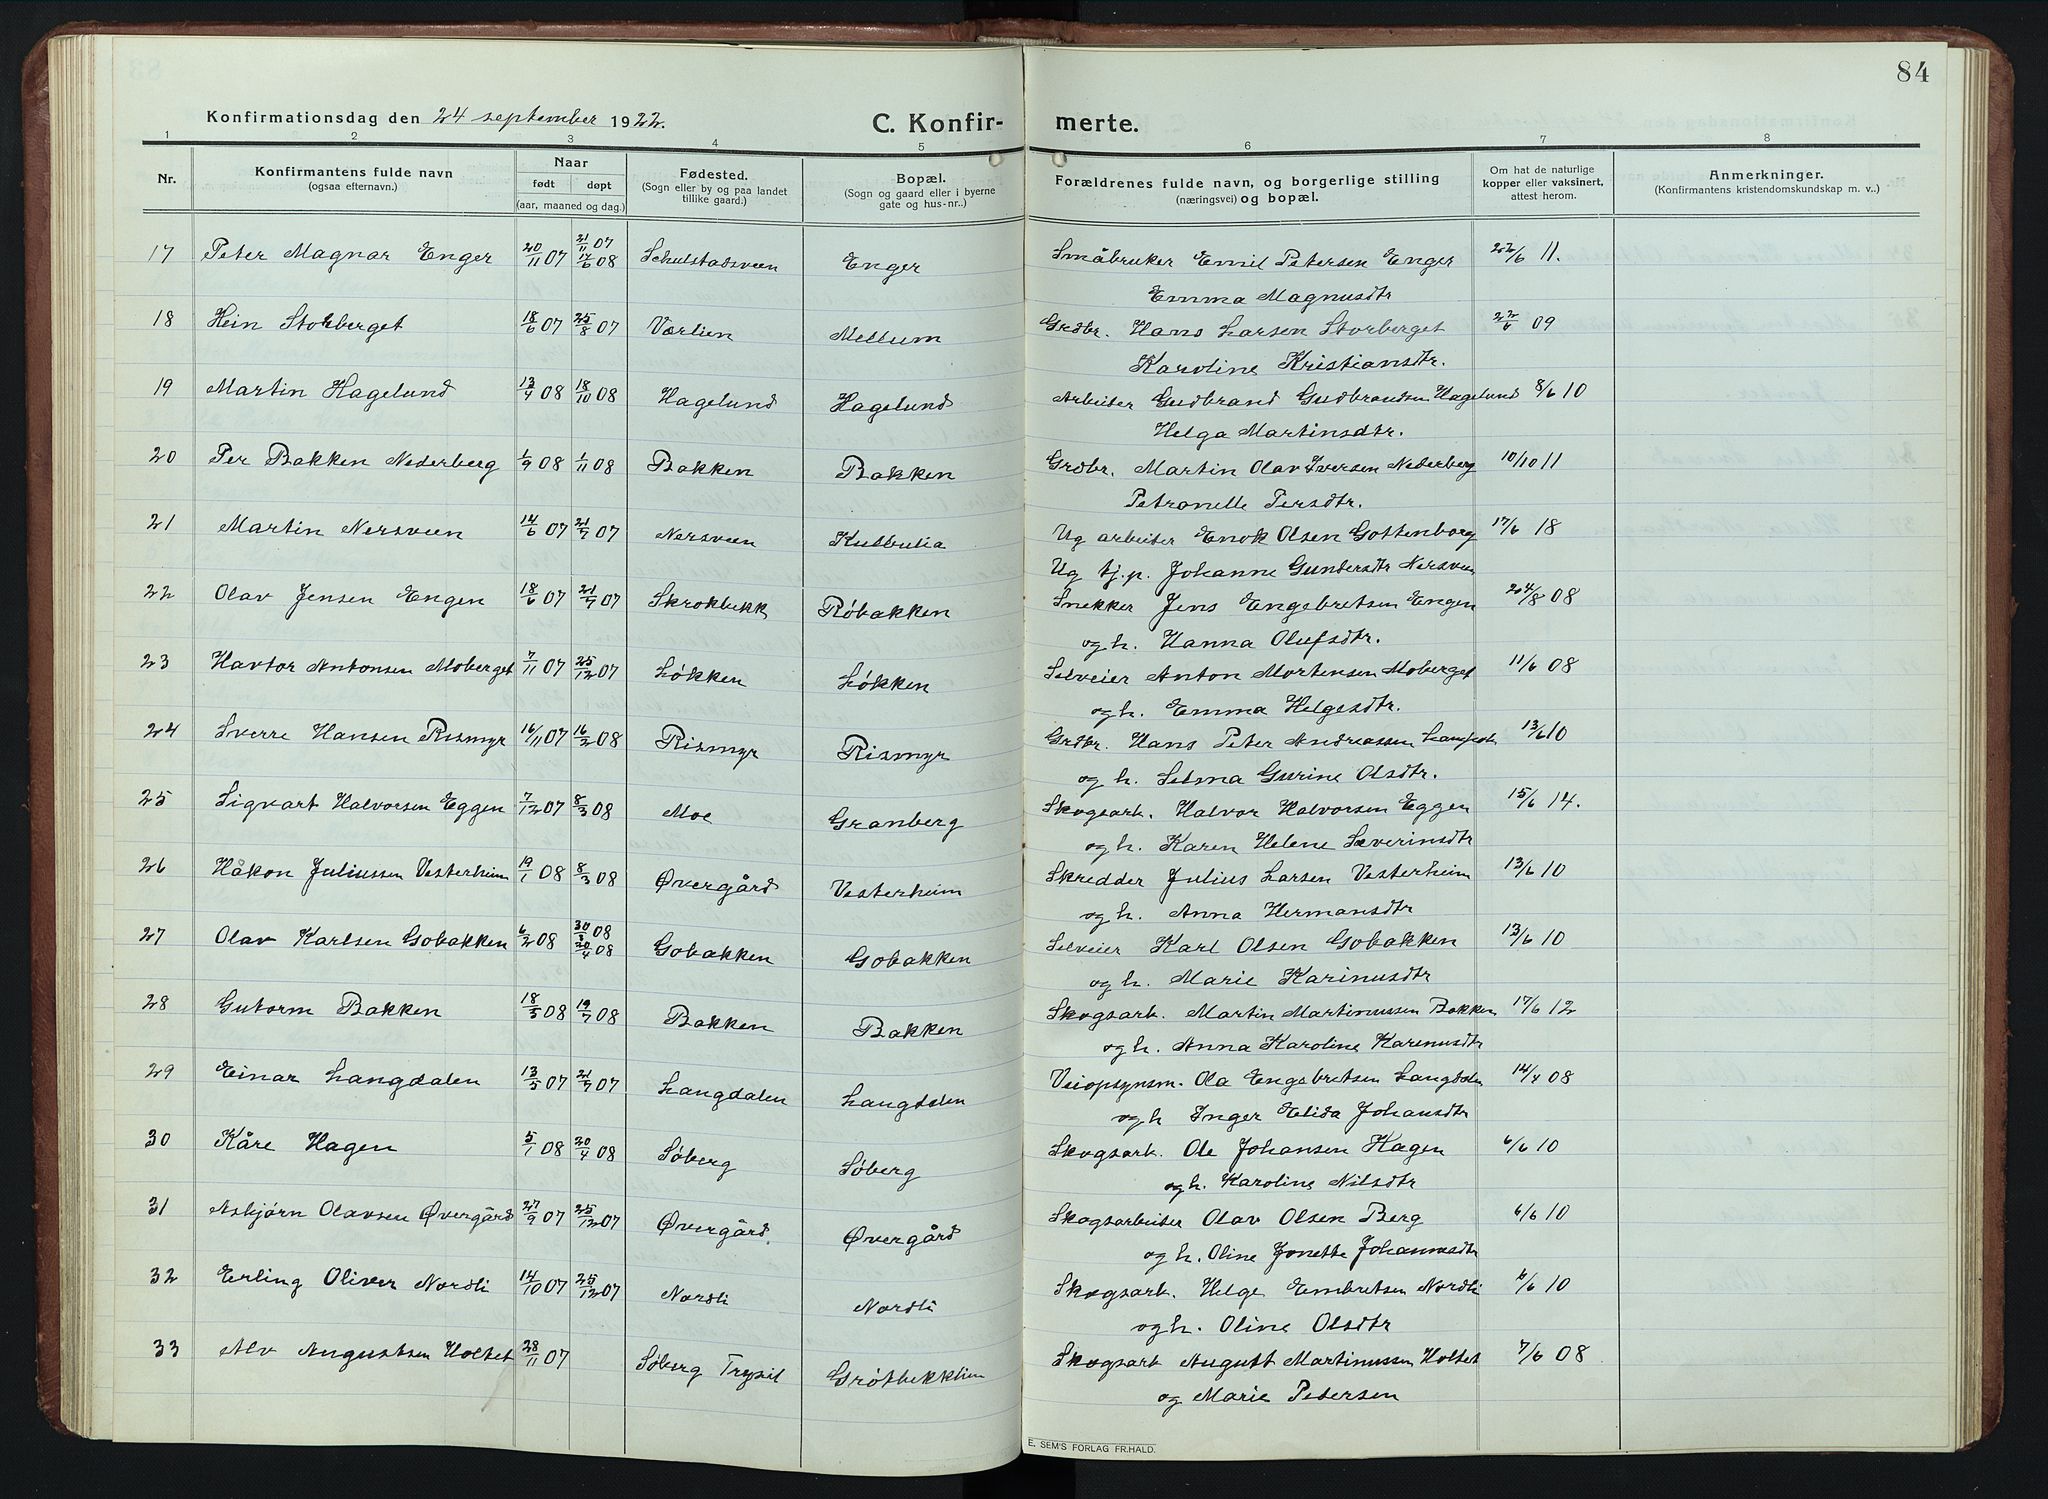 84
Konfirmationsdag den 24 september 1922.
C. Konfir- merte.
1 2 3 4 5 6 7 8
Nr.
Konfirmantens fulde navn
(ogsaa efternavn.)
Naar
født døpt
(aar, maaned og dag.)
Fødested.
(Sogn eller by og paa landet
tillike gaard.)
Bopæl.
(Sogn og gaard eller i byerne
gate og hus-nr..)
Forældrenes fulde navn, og borgerlige stilling
(næringsvei) og bopæl.
Om hat de naturlige
kopper eller vaksinert,
attest herom.
Anmerkninger.
(Konfirmantens kristendomskundskap m. v..)
17 Peter Magnar Enger 20/11 07 21/11 07 Schulstadsveen Enger Småbruker Emil Petersen Enger 22/6 11.
17/6 08
Emma Magnusdtr
18 Hein Storberget 18/6 07 25/8 07 Værlien Mellum Grdbr. Hans Larsen Storberget 22/6 09
Karoline Kristiansdtr.
19 Martin Hagelund 13/4 08 18/10 08 Hagelund Hagelund Arbeider Gudbrand Gudbrandsen Hagelund 8/6 10
Helga Martinsdtr.
20 Per Bakken Nederberg 1/9 08 1/11 08 Bakken Bakken Grdbr. Martin Olav Iversen Nederberg 10/10 11
Petronelle Persdtr.
21 Martin Nersveen 14/6 07 21/7 07 Nersveen Kulbulia Ug arbeider Enok Olsen Gottenborg 17/6 18
Ug tj.p. Johanne Gundersdtr Nersveen
22 Olav Jensen Engen 18/6 07 21/7 07 Skrokbekk Røbakken Snekker Jens Engebretsen Engen 24/8 08
og h. Hanna Olufsdtr.
23 Havtor Antonsen Moberget 7/11 07 25/12 07 Løkken Løkken Selveier Anton Mortensen Moberget 11/6 08
og h. Emma Helgesdtr.
24 Sverre Hansen Rismyr 16/11 07 16/2 08 Rismyr Rismyr Grdbr. Hans Peter Andreassen 13/6 10
og h. Selma Gurine Olsdtr.
25 Sigvart Halvorsen Eggen 7/12 07 8/3 08 Moe Granberg Skogsarb. Halvor Halvorsen Eggen 15/6 14.
og h. Karen Helene Severinsdtr
26 Håkon Juliussen Vesterheim 19/1 08 8/3 08 Øvergård Vesterheim Skredder Julius Larsen Vesterheim 13/6 10
og h. Anna Hermansdtr
27 Olav Karlsen Gobakken 6/2 08 30/3 08 Gobakken Gobakken Selveier Karl Olsen Gobakken 13/6 10
20/4 08
og h. Marie Karinusdtr
28 Gutorm Bakken 18/5 08 19/7 08 Bakken Bakken Skogsarb. Martin Martinussen Bakken 17/6 12
og h. Anna Karoline Karenusdtr
29 Einar Langdalen 13/5 07 21/7 07 Langdalen Langdalen Veiopsynsm. Ola Engebretsen Langdalen 14/4 08
og h Inger Elida Johansdtr
30 Kåre Hagen 5/1 08 20/4 08 Søberg Søberg Skogsark. Ole Johansen Hagen 6/6 10
og h. Karoline Nilsdtr
31 Asbjørn Olavsen Øvergård 27/9 07 25/12 07 Øvergård. Øvergård Skogsarbeider Olav Olsen Berg 6/6 10
og h. Oline Jonette Johannesdtr
32 Erling Oliver Nordli 14/10 07 25/12 07 Nordli Nordli Skogsark. Helge Embretsen Nordli 6/6 10
og h. Oline Olsdtr
33 Alv Augustsen Holtet 28/11 07 Søberg Trysil Grøtbekklien Skogsark August Martinussen Holtet 7/6 08
og Marie Petersen
E. SEM'S FORLAG FR.HALD.